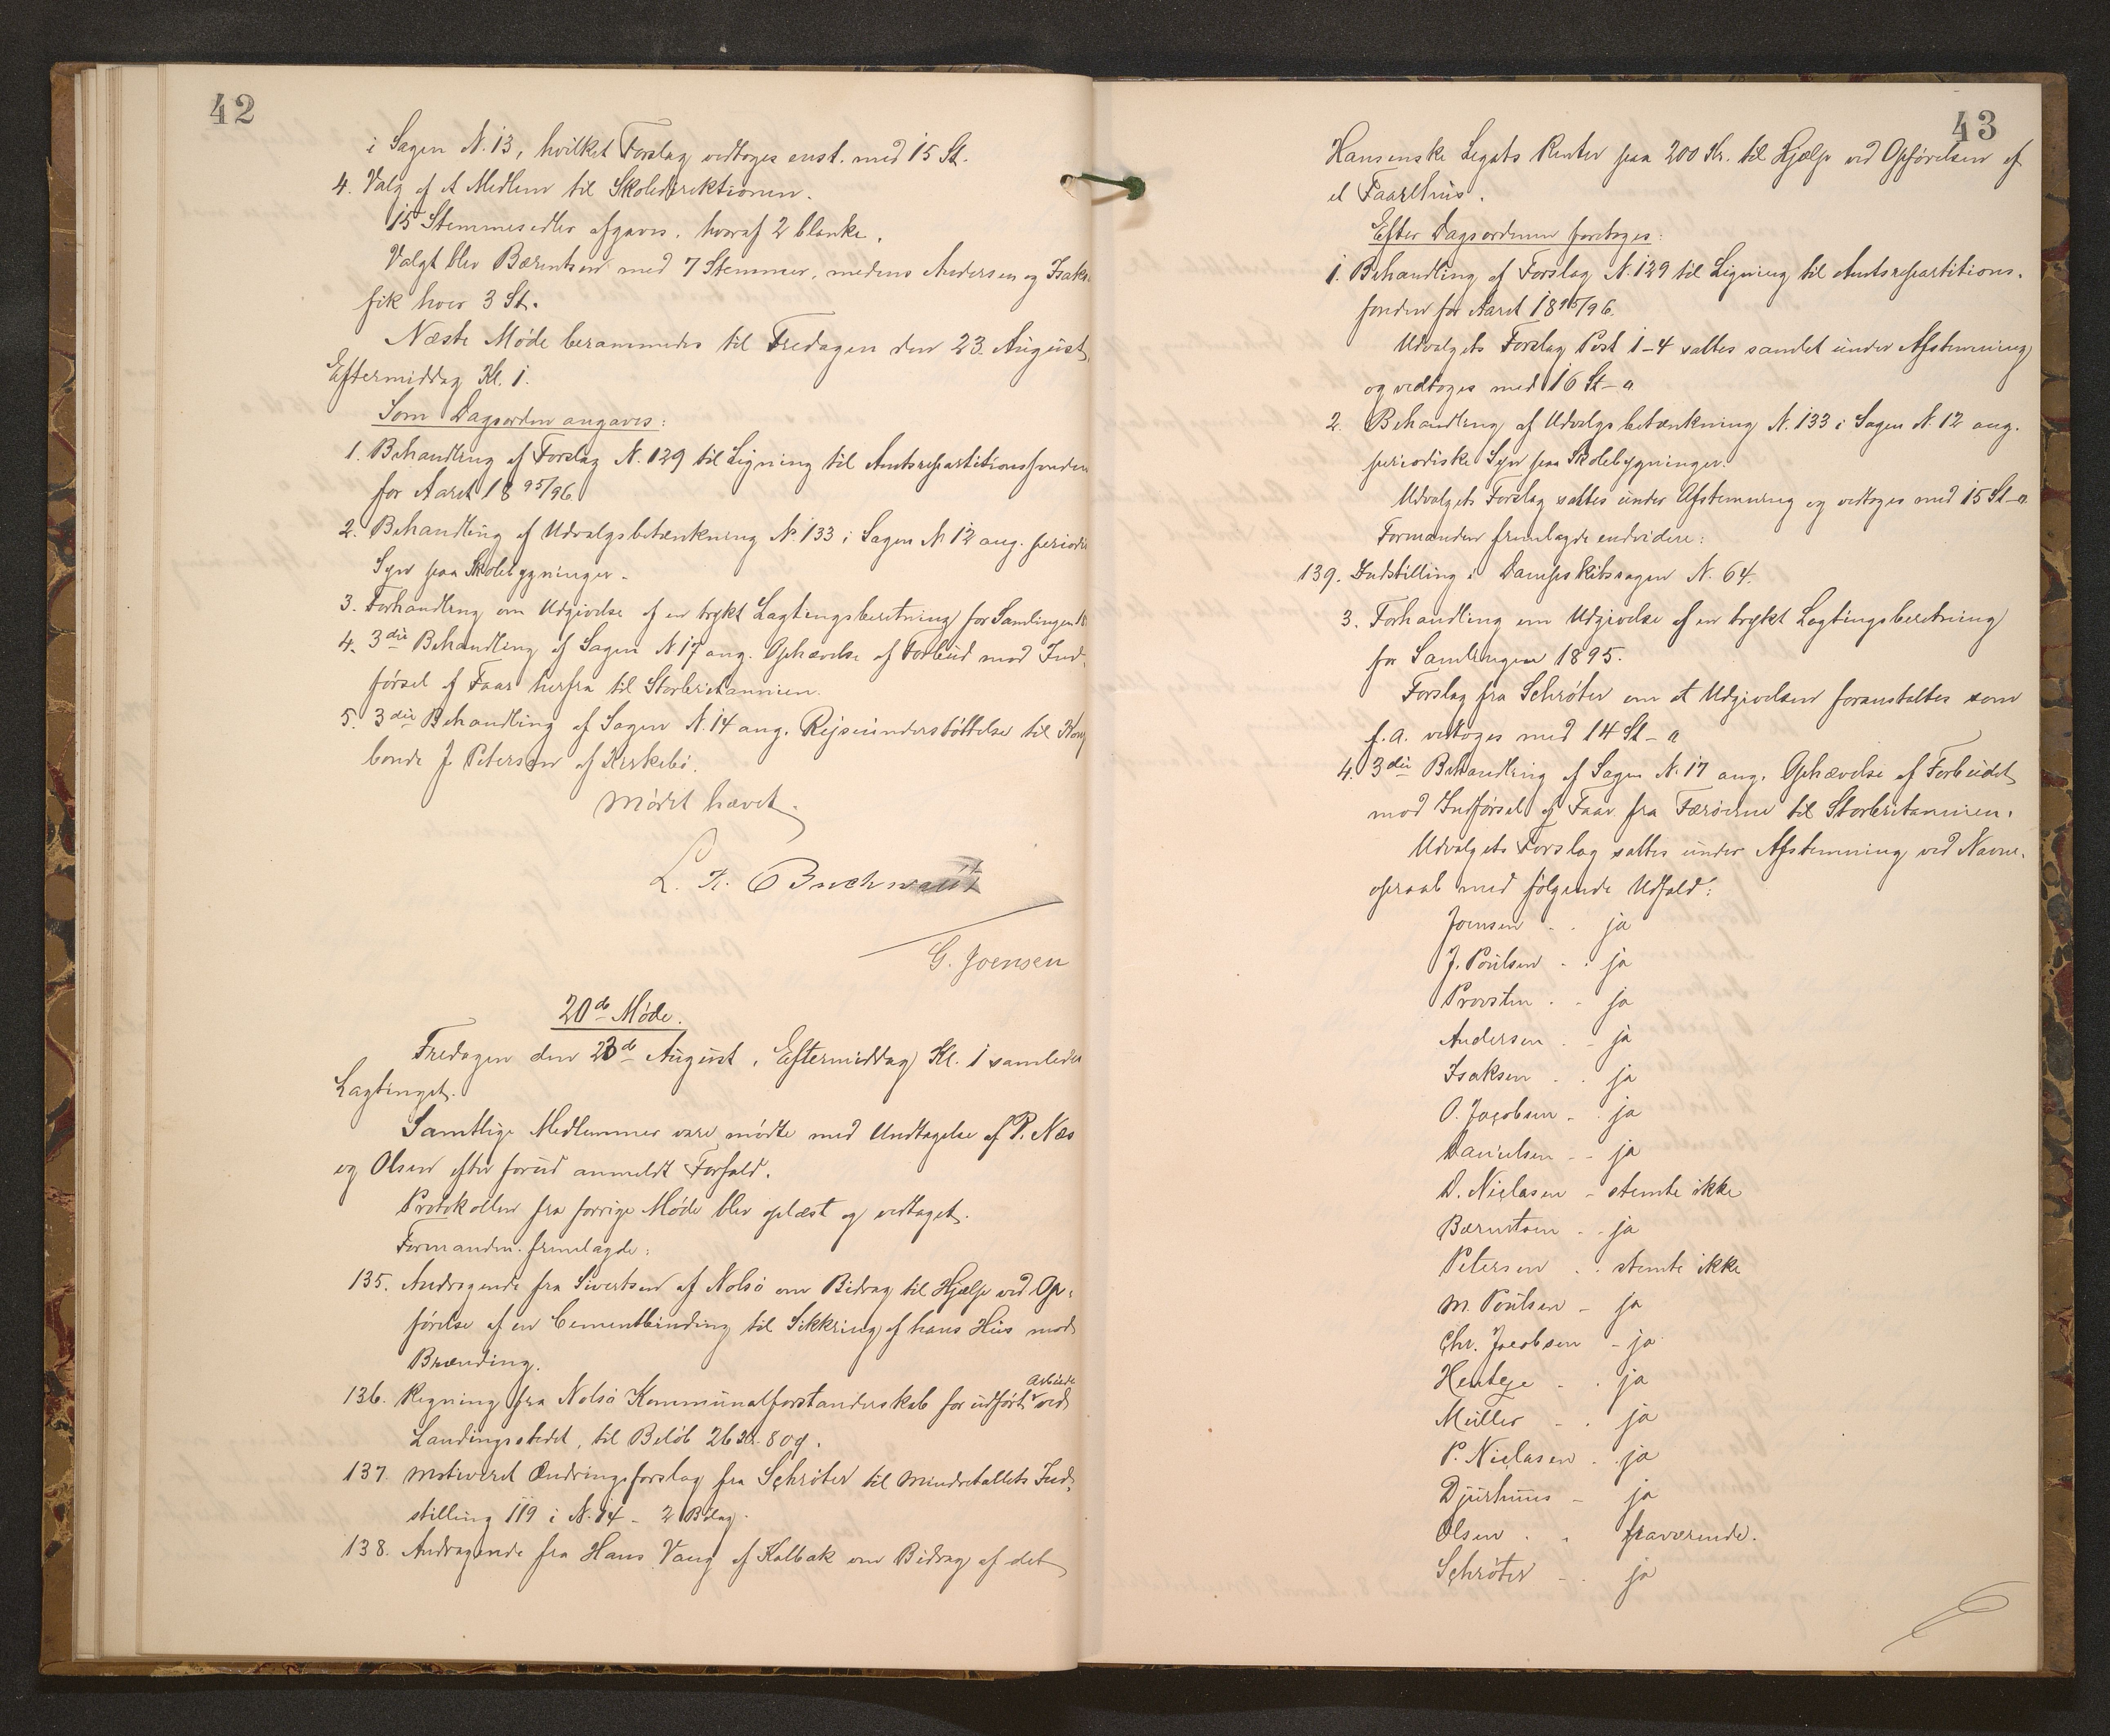 42
i Sagen N. 13, hvilket Forslag vedtoges enst. med 15 St.
4. Valg af et Medlem til Skoledirektionen.
15 Stemmesedler afgaves, hvoraf 2 blanke.
Valgt blev Bærentsen med 7 Stemmer, medens Andersen og Isaks
fik hver 3 St.
Næste Møde berammedes til Fredagen den 23. August,
Eftermiddag Kl. 1.
Som Dagsorden angaves:
1. Behandling af Forslag N. 129 til Ligning til Amtsrepartitionsfonden
for Aaret 18 95/96
2. Behandling af Udvalgsbetænkning N. 133 i Sagen N 12 ang. periodi
Syn paa Skolebygninger.
3. Forhandling om Udgivelse af en trykt Lagtingsberetning for Samlingen 18
4. 3die Behandling af Sagen N 17 ang. Ophævelse af Forbud mod Ind-
førsel af Faar herfra til Storbritannien.
5. 3die Behandling af Sagen N. 14 ang. Rejseunderstøttelse til Kong
bonde J Petersen af Kirkebø.
Mødet hævet.
L. K. Buchwaldt
G. Joensen
20de Møde.
Fredagen den 23de August, Eftermiddag Kl. 1 samledes
Lagtinget.
Samtlige Medlemmer vare mødte med Undtagelse af P. Næs
og Olsen efter forud anmeldt Forfald.
Protokollen fra forrige Møde blev oplæst og vedtaget.
Formanden fremlagde:
135. Andragende fra Sivertsen af Nolsø om Bidrag til Hjælp ved Op-
førelse af en Cementbinding til Sikkring af hans Hus mod
Brænding.
136. Regning fra Nolsø Kommunalforstanderskab for udført Arbeide ved
Landingsstedet, til Beløb 26 Kr. 80 Ø.
137. Motiveret Ændringsforslag fra Schrøter til Mindretallets Ind-
stilling 119 i N. 14 - 2 Bilag.
138. Andragende fra Hans Vang af Kalbak om Bidrag af det
43
Hansenske Legats Renter paa 200 Kr. til Hjælp ved Opførelsen af
et Faarehus.
Efter Dagsordenen foretoges:
1. Behandling af Forslag N. 129 til Ligning til Amtsrepartitions-
fonden for Aaret 1895/96.
Udvalgets Forslag Post 1-4 sattes samlet under Afstemning
og vedtoges med 16 St-a
2. Behandling af Udvalgsbetænkning N. 133 i Sagen N. 12 ang.
periodiske Syn paa Skolebygninger.
Udvalgets Forslag sattes under Afstemning og vedtoges med 15 St-a
Formanden fremlagde endvidere:
139. Indstilling i Dampskibssagen N. 64.
3. Forhandling om Udgivelse af en trykt Lagtingsberetning
for Samlingen 1895.
Forslag fra Schrøter om at Udgivelsen foranstaltes som
f.A. vedtoges med 14 St-a
4. 3die Behandling af Sagen N. 17 ang. Ophævelse af Forbudet
mod Indførsel af Faar fra Færøerne til Storbritannien.
Udvalgets Forslag sattes under Afstemning ved Navne-
opraab med følgende Udfald:
Joensen - - ja
J. Poulsen - - ja
Provsten - - ja
Andersen - - ja
Isaksen - - ja
O. Jacobsen - - ja
Danielsen - - ja
D. Niclasen - stemte ikke
Bærentsen - - ja
Petersen - - stemte ikke
M. Poulsen - ja
Chr. Jacobsen - ja
Hentze - - ja
Müller - - ja
P. Niclasen - - ja
Djurhuus - ja
Olsen - - fraværende.
Schrøter - - ja